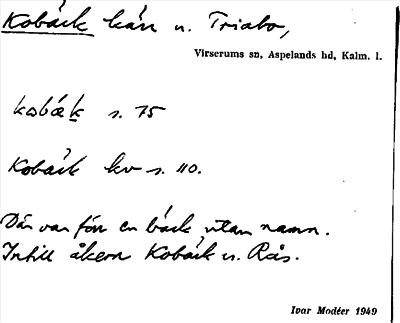 Kobäck kärr u. Triabo,
Virserums sn, Aspelands hd, Kalm. l.
kobæk s. 75
Kobäck kv s. 110.
Där var förr en bäck utan namn.
Intill åkern Kobäck u. Rås.
Ivar Modéer 1949